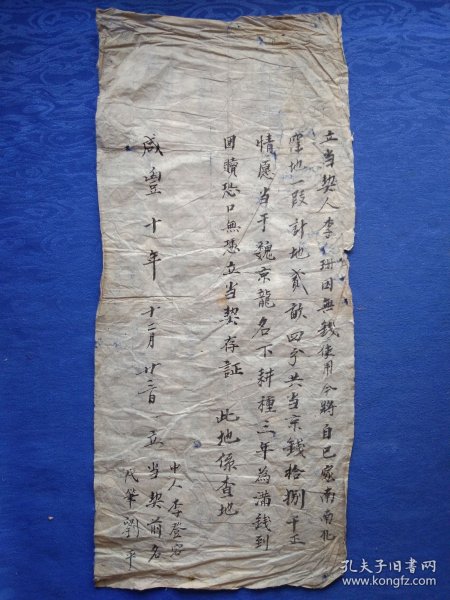 立当契人李 珊因無錢使用今將自己家南南北
窪地一段計地貳畝四分共当京錢拾捌千正
情愿当于魏京龍名下耕種三年為滿錢到
回贖恐口無憑立当契存証 此地係查地
咸豐十年 十二月 廿二日 立 当契前名
中人李登容
代筆劉平
孔夫子旧书网
www.kongfz.com